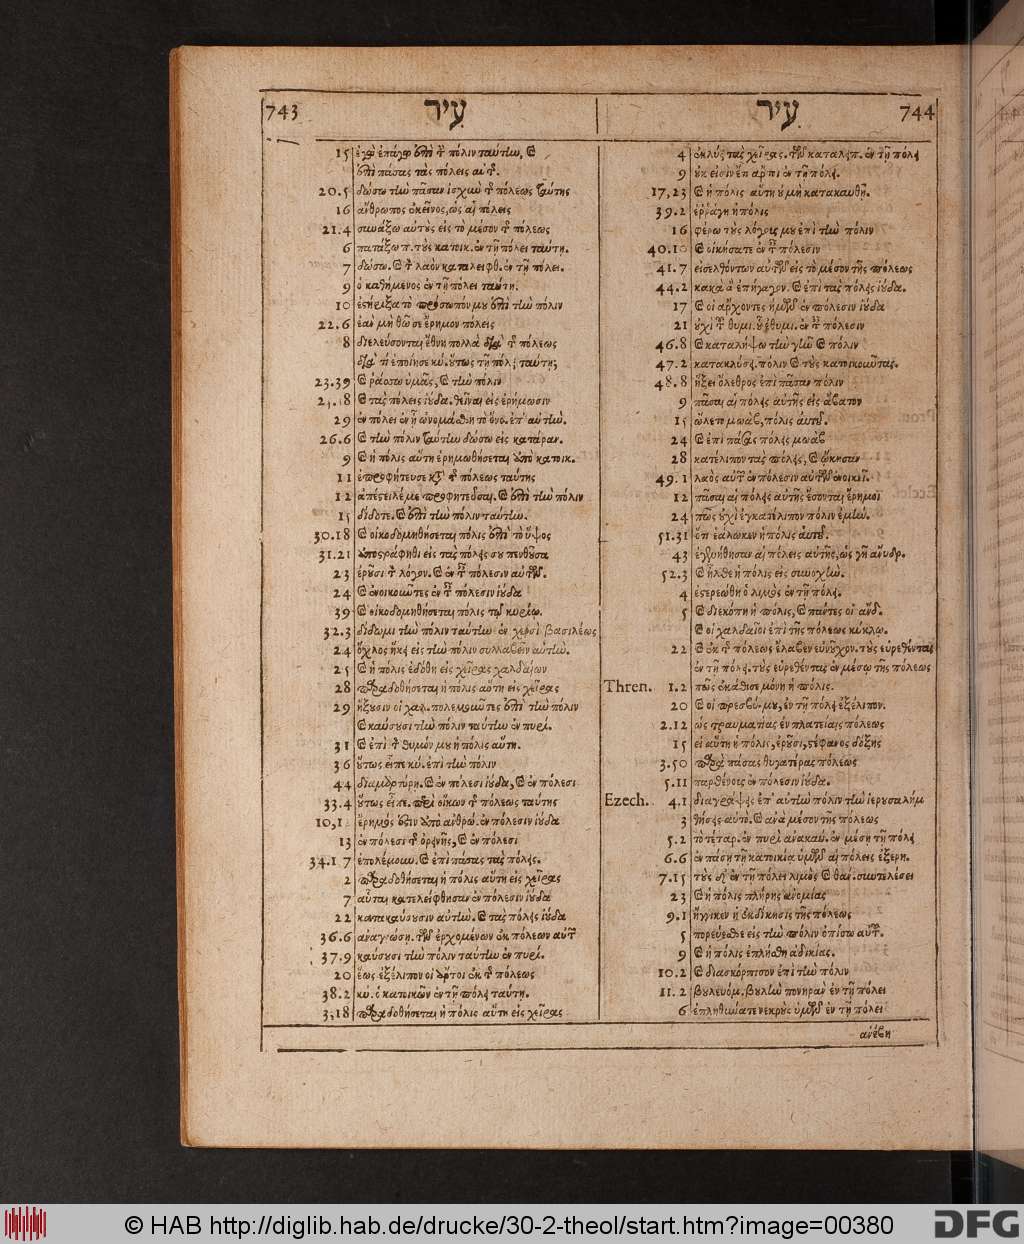 743 עִיר
15 ἐγὼ ἐπάγω ἐπὶ τ πόλιν ταύτην, καὶ
ἐπὶ πάσας τὰς πόλεις αυτ.
20.5 δώσω τὴν πᾶσαν ἰσχὺν τ πόλεως ταύτης
16 ἄνθρωπος ἐκεῖνος, ὡς αἱ πόλεις
21.4 συνάξω αὐτοὺς εἰς τὸ μέσον τ πόλεως
6 πατάξω π. τοὺς κατοικ. ἐν τῇ πόλει ταύτῃ.
7 δώσω. καὶ τ λαὸν καταλειφθ. ἐν τῇ πόλει.
9 ὁ καθήμενος ἐν τῇ πόλει ταύτῃ.
10 ἐστήριξα τὸ πρόσωπόν μου ἐπὶ τὴν πόλιν
22.6 ἐὰν μὴ θῶ σε ἔρημον πόλεις
8 διελεύσονται ἔθνη πολλὰ διὰ τ πόλεως
διὰ τί ἐποίησε κύ. οὕτως τῇ πόλει ταύτῃ;
23.39 καὶ ῥάσσω ὑμᾶς, καὶ τὴν πόλιν
18 καὶ τὰς πόλεις ἰούδα. θεῖναι εἰς ἐρήμωσιν
29 ἐν πόλει ἐν ᾗ ὠνομάσθη τὸ ὄνο. ἐπ' αὐτὴν.
26.6 καὶ τὴν πόλιν ταύτην δώσω εἰς κατάραν.
9 καὶ ἡ πόλις αὕτη ἐρημωθήσεται ὑπὸ κατοικ.
11 ἐπροφήτευσε κτ τ πόλεως ταύτης
12 ἀπέστειλέ με προφητεῦσαι. καὶ ἐπὶ τὴν πόλιν
15 δίδοτε. καὶ ἐπὶ τὴν πόλιν ταύτην.
30.18 καὶ οἰκοδομηθήσεται πόλις ἐπὶ τὸ ὕψος
31.21 ἀποστράφηθι εἰς τὰς πόλεις σου πενθοῦσα
23 ἐροῦσι τ λόγον. καὶ ἐν τ πόλεσιν αὐτῶν.
24 καὶ ἐνοικοῦντες ἐν τ πόλεσιν ἰούδα
39 καὶ οἰκοδομηθήσεται πόλις τῷ κυρίῳ.
32.3 δίδωμι τὴν πόλιν ταύτην ἐν χερσὶ βασιλέως
24 ὄχλος ἥκει εἰς τὴν πόλιν συλλαβεῖν αὐτὴν.
25 καὶ ἡ πόλις ἐδόθη εἰς χεῖρας χαλδαίων
28 παραδοθήσεται ἡ πόλις αὕτη εἰς χεῖρας
29 ἥξουσιν οἱ χαλ. πολεμοῦντες ἐπὶ τὴν πόλιν
καὶ καύσουσι τὴν πόλιν ταύτην ἐν πυρί.
31 καὶ ἐπὶ τ θυμόν μου ἡ πόλις αὕτη.
36 οὕτως εἶπε κύ. ἐπὶ τὴν πόλιν
44 διαμαρτύρῃ. καὶ ἐν πόλεσι ἰούδα, καὶ ἐν πόλεσι
33.4 οὕτως εἶπε. περὶ οἴκων τ πόλεως ταύτης
10,1 ἔρημός ἐστιν ὑπὸ ἀνθρώ. ἐν πόλεσιν ἰούδα
13 ἐν πόλεσι τ ὀρεινῆς, καὶ ἐν πόλεσι
34.1 7 ἐπολέμουν. καὶ ἐπὶ πάσας τὰς πόλεις.
2 παραδοθήσεται ἡ πόλις αὕτη εἰς χεῖρας
7 αὗται κατελείφθησαν ἐν πόλεσιν ἰούδα
22 κατακαύσουσιν αὐτὴν. καὶ τὰς πόλεις ἰούδα
36.6 ἀναγνώσῃ. τῶν ἐρχομένων ἐκ πόλεων αὐτ
37.9 καύσουσι τὴν πόλιν ταύτην ἐν πυρί.
20 ἕως ἐξέλιπον οἱ ἄρτοι ἐκ τ πόλεως
38.2 κύ. ὁ κατοικῶν ἐν τῇ πόλει ταύτῃ.
3,18 παραδοθήσεται ἡ πόλις αὕτη εἰς χεῖρας
עִיר 744
4 ἐκλύσ τὰς χεῖρας. τῶν καταλειπ. ἐν τῇ πόλει
9 οὐκ εἰσὶν ἔτι ἄρτοι ἐν τῇ πόλει.
17,23 καὶ ἡ πόλις αὕτη οὐ μὴ κατακαυθῇ.
39.2 ἐρράγη ἡ πόλις
16 φέρω τοὺς λόγους μου ἐπὶ τὴν πόλιν
40.10 καὶ οἰκήσατε ἐν τ πόλεσιν
41.7 εἰσελθόντων αὐτῶν εἰς τὸ μέσον τῆς πόλεως
44.2 κακὰ ἃ ἐπήγαγον. καὶ ἐπὶ τὰς πόλεις ἰούδα.
17 καὶ οἱ ἄρχοντες ἡμῶν ἐν πόλεσιν ἰούδα
21 οὐχὶ τ θυμι. οὗ ἐθυμι. ἐν τ πόλεσιν
46.8 καὶ καταλήψω τὴν γῆν καὶ πόλιν
47.2 κατακλύσει πόλιν καὶ τοὺς κατοικοῦντας.
48.8 ἥξει ὄλεθρος ἐπὶ πᾶσαν πόλιν
9 πᾶσαι αἱ πόλεις αὐτῆς εἰς ἄβατον
15 ὤλετο μωὰβ, πόλις αὐτοῦ.
24 καὶ ἐπὶ πάσας πόλεις μωὰβ
28 κατέλιπον τὰς πόλεις, καὶ ᾤκησαν
49.1 λαὸς αὐτ ἐν πόλεσιν αὐτῶν ἐνοικεῖ.
12 πᾶσαι αἱ πόλεις αὐτῆς ἔσονται ἔρημοι
24 πῶς οὐχὶ ἐγκατέλιπον πόλιν ἐμὴν.
51.31 ὅτι ἑάλωκεν ἡ πόλις αὐτοῦ.
43 ἐγενήθησαν αἱ πόλεις αὐτῆς, ὡς γῆ ἄνυδρ.
52.3 καὶ ἦλθε ἡ πόλις εἰς συνοχὴν.
4 ἐστερεώθη ὁ λιμὸς ἐν τῇ πόλει.
5 καὶ διεκόπη ἡ πόλις, καὶ πάντες οἱ ἄνδ.
καὶ οἱ χαλδαῖοι ἐπὶ τῆς πόλεως κύκλῳ.
22 καὶ ἐκ τ πόλεως ἔλαβεν εὐνοῦχον. τοὺς εὑρεθέντας
ἐν τῇ πόλει. τοὺς εὑρεθέντας ἐν μέσῳ τῆς πόλεως
Thren. 1.2 πῶς ἐκάθισε μόνη ἡ πόλις.
20 καὶ οἱ πρεσβύ. μου, ἐν τῇ πόλει ἐξέλιπον.
2.12 ὡς τραυματίας ἐν πλατείαις πόλεως
15 εἰ αὕτη ἡ πόλις, ἐροῦσι, στέφανος δόξης
3.50 παρὰ πάσας θυγατέρας πόλεως
5.11 παρθένους ἐν πόλεσιν ἰούδα.
Ezech. 4.1 διαγράψεις ἐπ' αὐτὴν πόλιν τὴν ἱερουσαλήμ
3 θήσεις αὐτὸ. καὶ ἀνὰ μέσον τῆς πόλεως
5.2 τὸ τέταρ. ἐν πυρὶ ἀνακαύ. ἐν μέσῃ τῇ πόλει
6.6 ἐν πάσῃ τῇ κατοικίᾳ ὑμῶν αἱ πόλεις ἐξερη.
7.15 τοὺς δὲ ἐν τῇ πόλει λιμὸς καὶ θάν. συντελέσει
23 καὶ ἡ πόλις πλήρης ἀνομίας
9.1 ἤγγικεν ἡ ἐκδίκησις τῆς πόλεως
5 πορεύεσθε εἰς τὴν πόλιν ὀπίσω αὐτ.
9 καὶ ἡ πόλις ἐπλήσθη ἀδικίας.
10.2 καὶ διασκόρπισον ἐπὶ τὴν πόλιν
11.2 βουλευόμ. βουλὴν πονηρὰν ἐν τῇ πόλει
6 ἐπληθύνατε νεκροὺς ὑμῶν ἐν τῇ πόλει
ἀνέβη
© HAB http://diglib.hab.de/drucke/30-2-theol/start.htm?image=00380 DFG